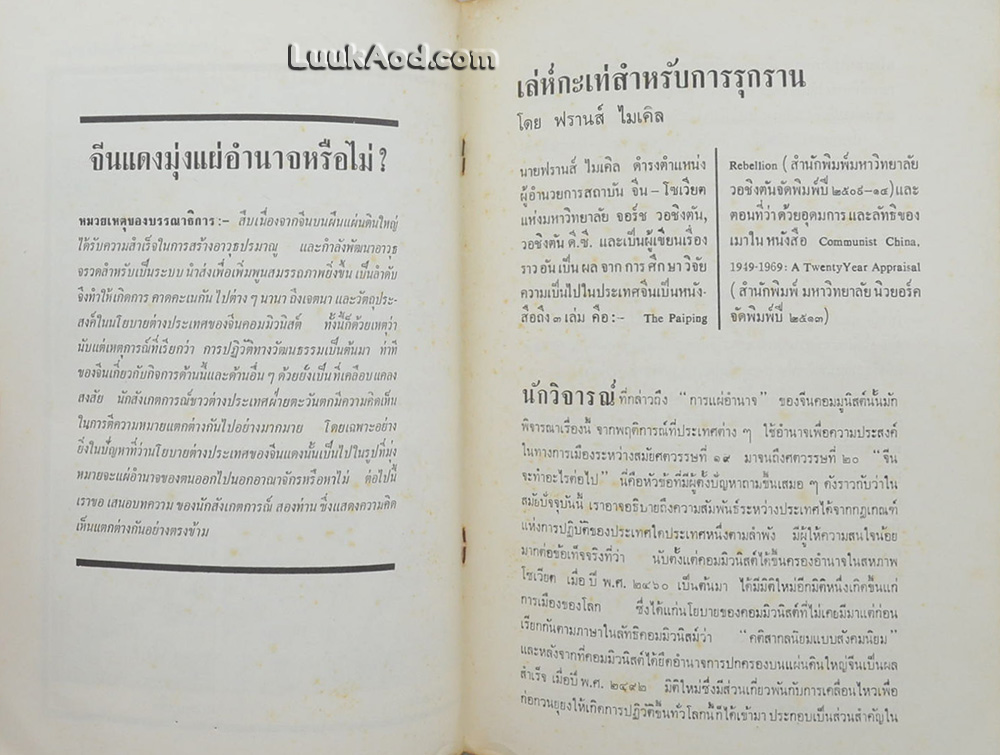 LuukAod.com
จีนแดงมุ่งแผ่อำนาจหรือไม่ ?
หมวยเหตุของบรรณาธิการ :- สืบเนื่องจากจีนบนผืนแผ่นดินใหญ่
ได้รับความสำเร็จในการสร้างอาวุธปรมาณู และกำลังพัฒนาอาวุธ
จรวดสำหรับเป็นระบบ นำส่งเพื่อเพิ่มพูนสมรรถภาพยิ่งขึ้น เป็นลำดับ
จึงทำให้เกิดการ คาดคะเนกัน ไปต่าง ๆ นานา ถึงเจตนา และวัตถุประ-
สงค์ในนโยบายต่างประเทศของจีนคอมมิวนิสต์ ทั้งนี้ก็ด้วยเหตุว่า
นับแต่เหตุการณ์ที่เรียกว่า การปฏิวัติทางวัฒนธรรมเป็นต้นมา ท่าที
ของจีนเกี่ยวกับกิจการด้านนี้และด้านอื่น ๆ ด้วยยังเป็น ที่เคลือบ แคลง
สงสัย นักสังเกตการณ์ชาวต่างประเทศฝ่ายตะวันตกมีความคิดเห็น
ในการตีความหมายแตกต่างกันไปอย่างมากมาย โดยเฉพาะอย่าง
ยิ่งในปัญหาที่ว่านโยบายต่างประเทศของจีนแดงนั้นเป็นไปในรูปที่มุ่ง
หมายจะแผ่อำนาจของตนออกไปนอกอาณาจักรหรือหาไม่ ต่อไปนี้
เราขอ เสนอบทความ ของนักสังเกตการณ์ สองท่าน ซึ่งแสดงความคิด
เห็นแตกต่างกันอย่างตรงข้าม
เล่ห์กะเท่สำหรับการรุกราน
โดย ฟรานส์ ไมเคิล
นายฟรานส์ ไมเคิล ดำรงตำแหน่ง
ผู้อำนวยการสถาบัน จีน – โซเวียต
แห่งมหาวิทยาลัย จอร์ช วอชิงตัน,
วอชิงตัน ดี.ซี. และเป็นผู้เขียนเรื่อง
ราว อัน เป็น ผล จาก การ ศึกษา วิจัย
ความเป็นไปในประเทศจีนเป็นหนัง-
สือถึง ๓ เล่ม คือ :- The Paiping
Rebellion ( สำนักพิมพ์มหาวิทยาลัย
วอชิงตันจัดพิมพ์ปี ๒๕๐๙–๑๔)และ
ตอนที่ว่าด้วยอุดมการ และลัทธิของ
เมาใน หนังสือ Communist China,
1949-1969: A TwentyYear Appraisal
( สำนักพิมพ์ มหาวิทยาลัย นิวยอร์ค
จัดพิมพ์ปี ๒๕๑๓)
นักวิจารณ์ ที่กล่าวถึง “การแผ่อำนาจ” ของจีนคอมมูนิสต์นั้นมัก
พิจารณาเรื่องนี้ จากพฤติการณ์ที่ประเทศต่าง ๆ ใช้อำนาจเพื่อความประสงค์
ในทางการเมืองระหว่างสมัยศตวรรษที่ ๑๙ มาจนถึงศตวรรษที่ ๒๐ “จีน
จะทำอะไรต่อไป” นี่คือหัวข้อที่มีผู้ตั้งปัญหาถามขึ้นเสมอ ๆ ดังราวกับว่าใน
สมัยปัจจุบันนี้ เราอาจอธิบายถึงความสัมพันธ์ระหว่างประเทศได้จากกฎเกณฑ์
แห่งการปฏิบัติของประเทศใดประเทศหนึ่งตามลำพัง มีผู้ให้ความสนใจน้อย
มากต่อข้อเท็จจริงที่ว่า นับตั้งแต่คอมมิวนิสต์ได้ขึ้นครองอำนาจในสหภาพ
โซเวียต เมื่อ ปี พ.ศ. ๒๔๖๐ เป็นต้นมา ได้มีมิติใหม่อีกมิติหนึ่งเกิดขึ้นแก่
การเมืองของโลก ซึ่งได้แก่นโยบายของคอมมิวนิสต์ที่ไม่เคยมีมาแต่ก่อน
เรียกกันตามภาษาในลัทธิคอมมิวนิสม์ว่า “คติสากลนิยมแบบสังคมนิยม”
และหลังจากที่คอมมิวนิสต์ได้ยึดอำนาจการปกครองบนแผ่นดินใหญ่จีนเป็นผล
สำเร็จ เมื่อปี พ.ศ. ๒๔๙๒ มิติใหม่ซึ่งมีส่วนเกี่ยวพันกับการเคลื่อนไหวเพื่อ
ก่อกวนยุยงให้เกิดการปฏิวัติขึ้นทั่วโลกนี้ก็ได้เข้ามา ประกอบเป็นส่วนสำคัญใน